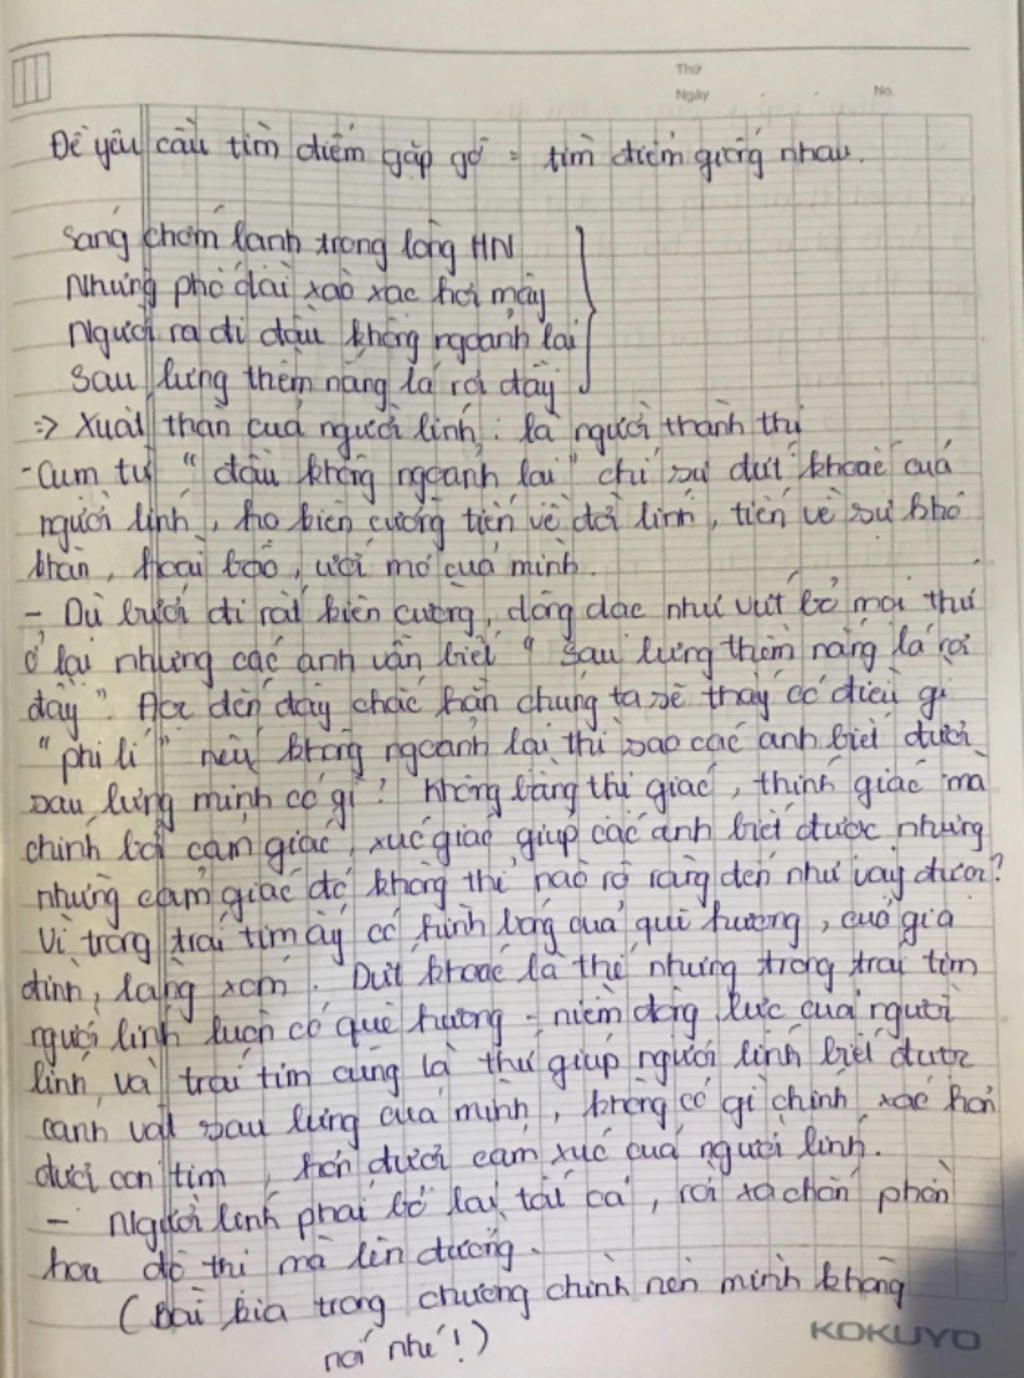 Thứ
Ngày
No.
Đề yêu cầu tìm điểm gặp gỡ = tìm điểm giống nhau.
Sáng chớm lạnh trong lòng HN
Những phố dài xao xác hơi may
Người ra đi đầu không ngoảnh lại
Sau lưng thềm nắng lá rơi đầy
=> Xuất thân của người lính: là người thành thị
- Cụm từ "đầu không ngoảnh lại" chỉ sự dứt khoát của
người lính, họ kiên cường tiến về đời lính, tiến về sự khó
khăn, hoài bão, ước mơ của mình.
- Dù bước đi rất kiên cường, dõng dạc như vứt bỏ mọi thứ
ở lại nhưng các anh vẫn biết "Sau lưng thềm nắng lá rơi
đầy". Đọc đến đây chắc hẳn chúng ta sẽ thấy có điều gì
"phi lí" nếu không ngoảnh lại thì sao các anh biết được
sau lưng mình có gì? Không bằng thị giác, thính giác mà
chính bởi cảm giác, xúc giác giúp các anh biết được nhưng
những cảm giác đó không thể nào rõ ràng đến như vậy được?
Vì trong trái tim ấy có hình bóng của quê hương, của gia
đình, làng xóm. Dứt khoát là thế nhưng trong trái tim
người lính luôn có quê hương - niềm động lực của người
lính, và trái tim cũng là thứ giúp người lính biết được
cảnh vật sau lưng của mình, không có gì chính xác hơn
được con tim, hơn được cảm xúc của người lính.
- Người lính phải bỏ lại tất cả, rời xa chốn phồn
hoa đô thị mà lên đường.
(Bài kia trong chương chình nên mình không
nói nhé!)
KOKUYO